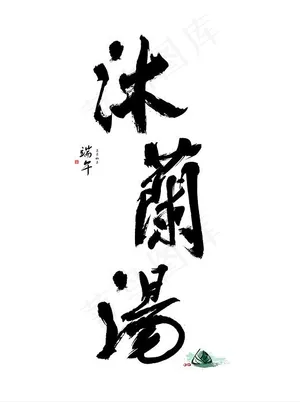 沐蘭湯
端午